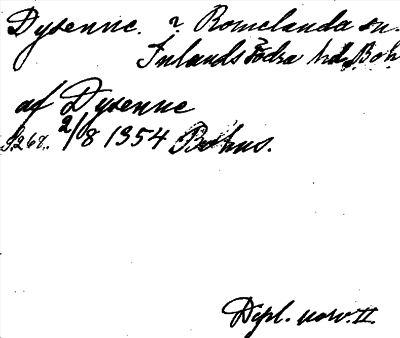 Dysenne. ? Romelanda sn.
Inlands Södra hd, Boh
af Dysenne
S. 268. 2/8 1354 Bohus.
Dipl. norv. II.